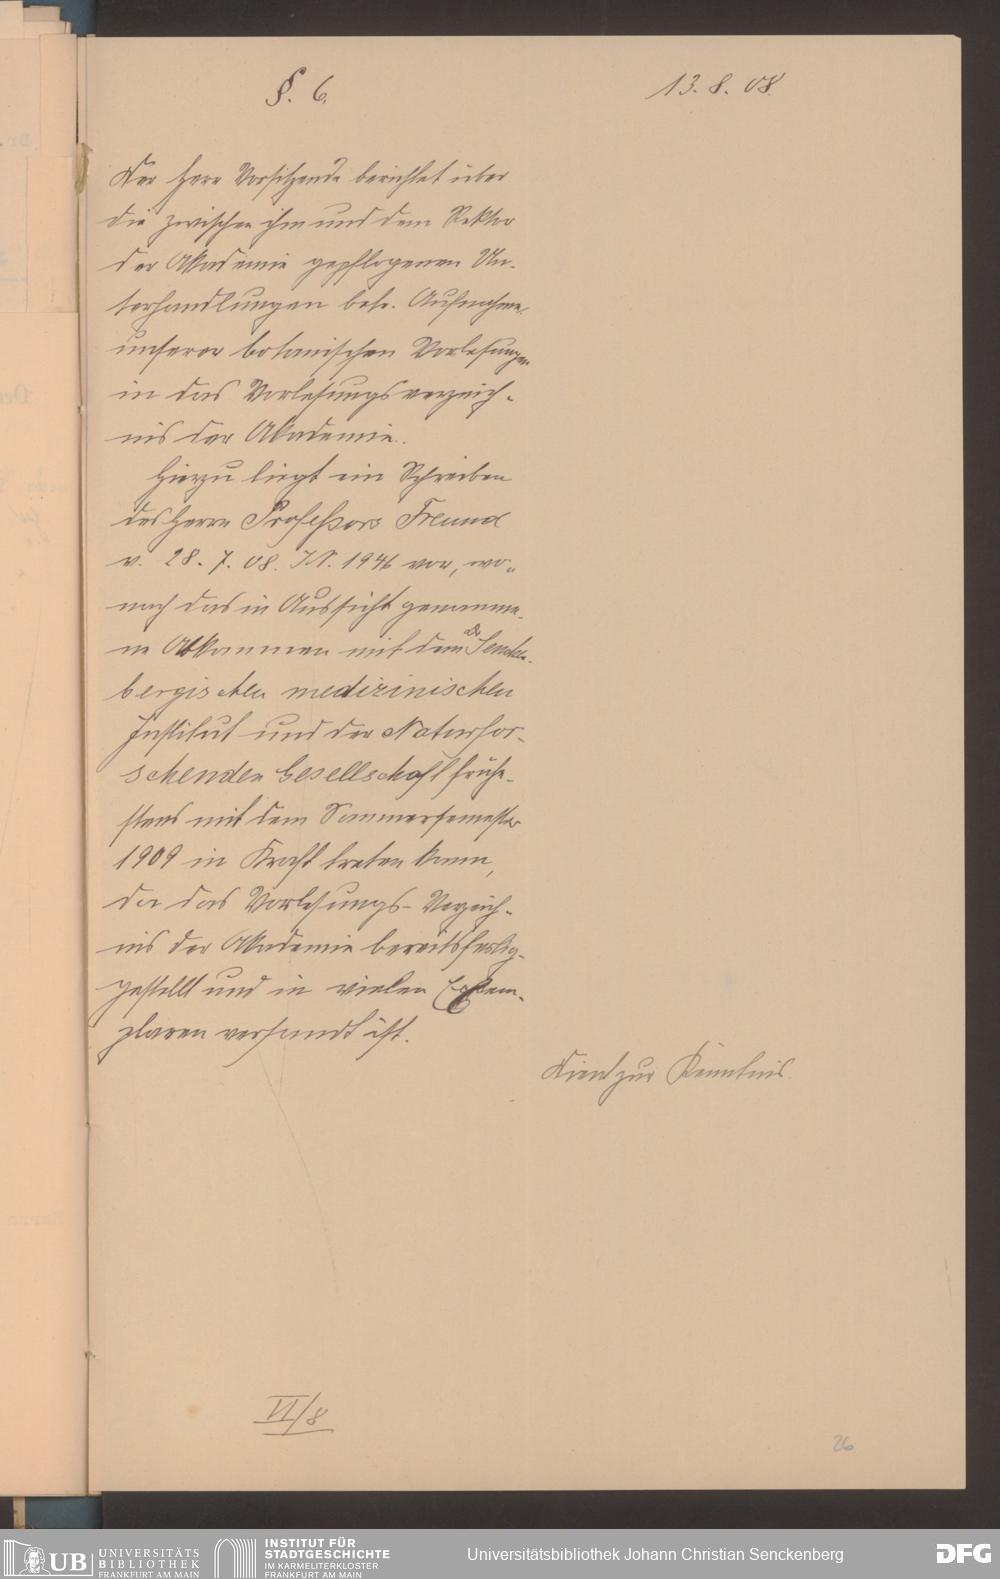 §. 6.
13. 8. 08.
Der Herr Vorsitzende berichtet über
die zwischen ihm und dem Rektor
der Akademie gepflogenen Un-
terhandlungen betr. Aufnahme
unserer botanischen Vorlesungen
in das Vorlesungsverzeich-
nis der Akademie.
Hierzu liegt ein Schreiben
des Herrn Professors Freund
v. 28. 7. 08. J.N. 1946 vor, wo-
nach das in Aussicht genomme-
ne Abkommen mit dem Dr. Sencken-
bergischen medizinischen
Institut und der Naturfor-
schenden Gesellschaft frühe-
stens mit dem Sommersemester
1909 in Kraft treten kann,
da das Vorlesungs-Verzeich-
nis der Akademie bereits fertig-
gestellt und in vielen Exem-
plaren versandt ist.
Dient zur Kenntnis.
VI/8
26
UB UNIVERSITÄTS
BIBLIOTHEK
FRANKFURT AM MAIN
INSTITUT FÜR
STADTGESCHICHTE
IM KARMELITERKLOSTER
FRANKFURT AM MAIN
Universitätsbibliothek Johann Christian Senckenberg
DFG